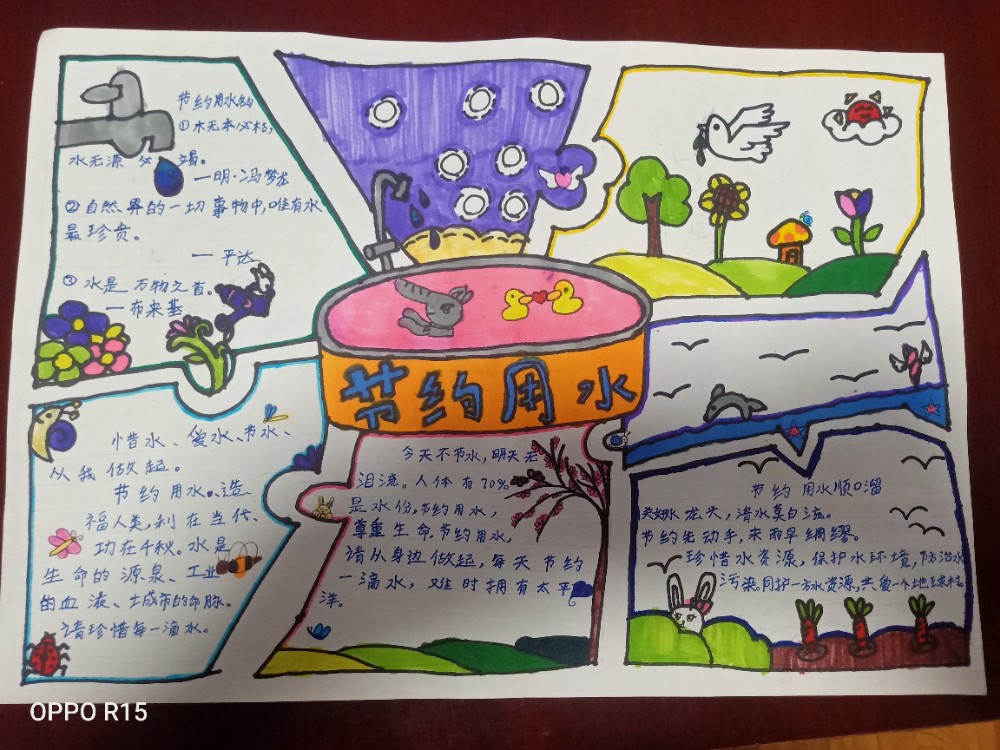 节约用水的
①水无本必枯,
水无源必竭。
一明·冯梦龙
②自然界的一切事物中,唯有水
最珍贵。
一平达
③水是万物之首。
一布来基
节约用水
惜水、爱水、节水、
从我做起。
节约用水、造
福人类,利在当代、
功在千秋。水是
生命的源泉、工业
的血液、城市的命脉。
请珍惜每一滴水。
今天不节水,明天无
泪流。人体有70%
是水份,节约用水,
尊重生命节约用水,
请从身边做起,每天节约
一滴水,难时拥有太平
洋。
节约用水顺口溜
关好水龙头,清水莫白流。
节约先动手,未雨早绸缪。
珍惜水资源,保护水环境,节方治水
污染同护一方水资源,共爱一个地球村
OPPO R15